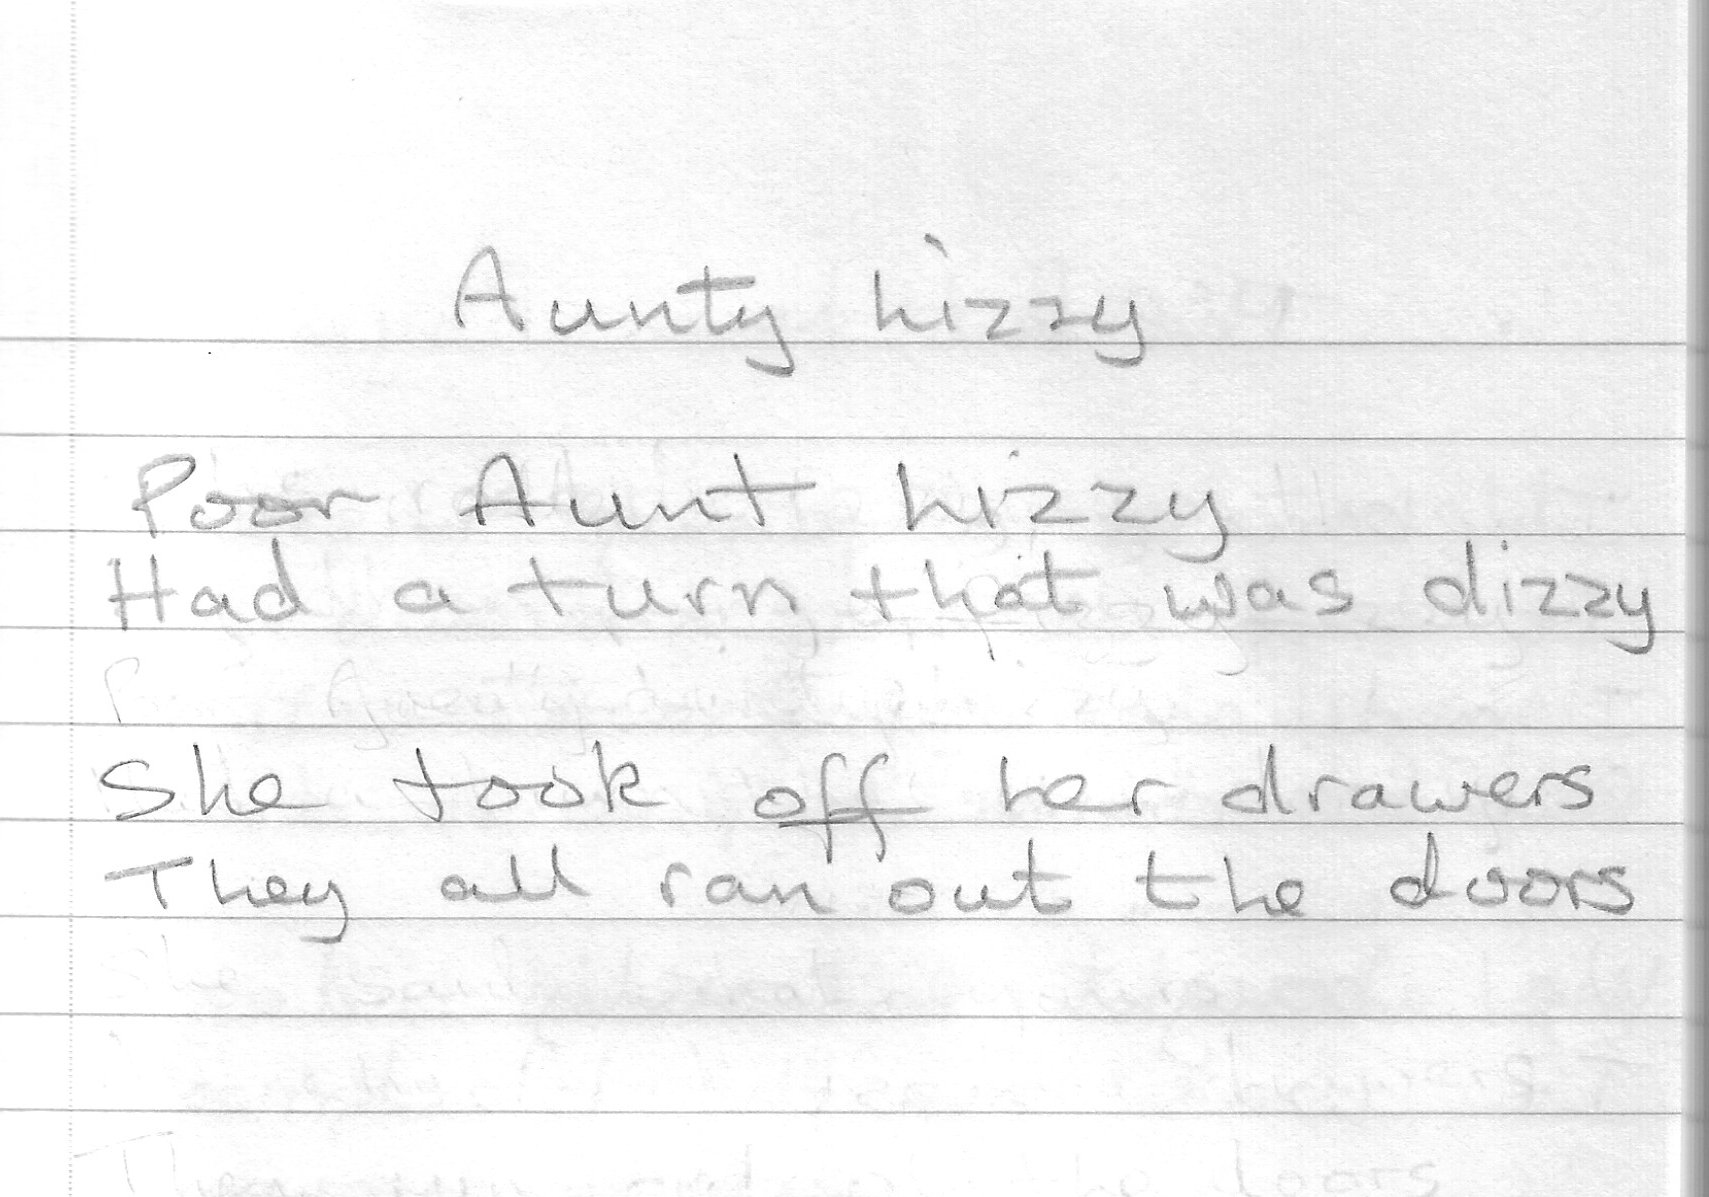 Aunty Lizzy
Poor Aunt Lizzy
Had a turn that was dizzy
She took off her drawers
They all ran out the doors